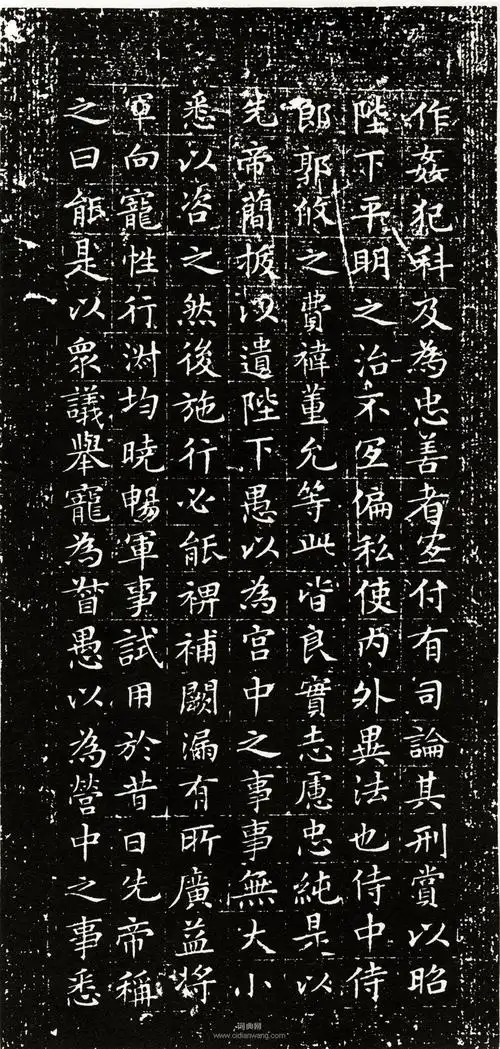 作姦犯科及為忠善者宜付有司論其刑賞以昭
陛下平明之治不宜偏私使内外異法也侍中侍
郎郭攸之費禕董允等此皆良實志慮忠純是以
先帝簡拔以遺陛下愚以為宮中之事事無大小
悉以咨之然後施行必能裨補闕漏有所廣益將
軍向寵性行淑均曉暢軍事試用於昔日先帝稱
之曰能是以眾議舉寵為督愚以為營中之事悉
词典网
www.cidianwang.com